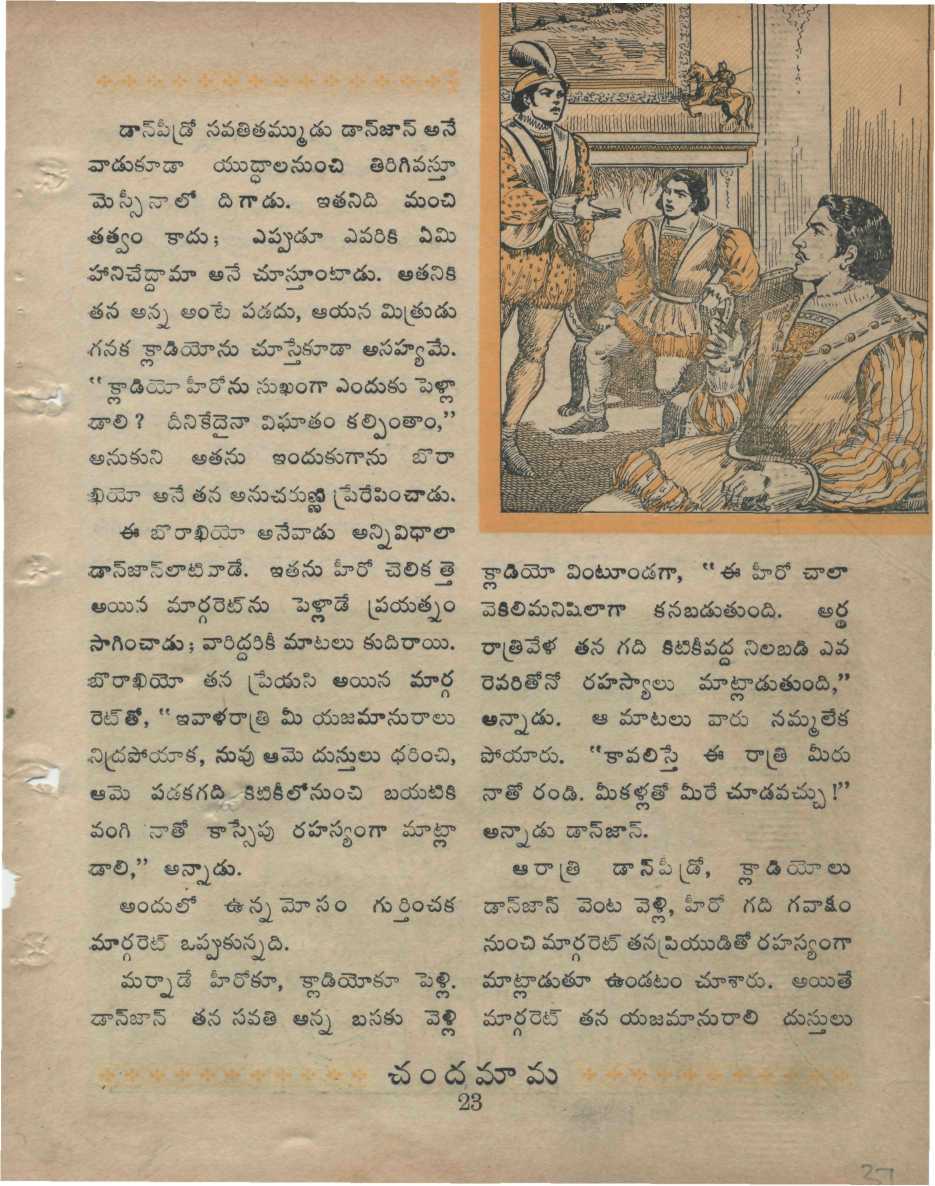 డాన్‌పీడ్రో సవతితమ్ముడు డాన్‌జాన్ అనే
వాడుకూడా యుద్ధాలనుంచి తిరిగివస్తూ
మెస్సీనాలో దిగాడు. ఇతనిది మంచి
తత్వం కాదు; ఎప్పుడూ ఎవరికి ఏమి
హానిచేద్దామా అనే చూస్తూంటాడు. అతనికి
తన అన్న అంటే పడదు, ఆయన మిత్రుడు
గనక క్లాడియోను చూస్తేకూడా అసహ్యమే.
“క్లాడియో హీరోను సుఖంగా ఎందుకు పెళ్లా
డాలి? దీనికేదైనా విఘాతం కల్పింతాం,”
అనుకుని అతను ఇందుకుగాను బొరా
ఖియో అనే తన అనుచరుణ్ణి ప్రేరేపించాడు.
ఈ బొరాఖియో అనేవాడు అన్నివిధాలా
డాన్‌జాన్‌లాటివాడే. ఇతను హీరో చెలికత్తె
అయిన మార్గరెట్‌ను పెళ్లాడే ప్రయత్నం
సాగించాడు; వారిద్దరికీ మాటలు కుదిరాయి.
బొరాఖియో తన ప్రేయసి అయిన మార్గ
రెట్‌తో, “ఇవాళరాత్రి మీ యజమానురాలు
నిద్రపోయాక, నువు ఆమె దుస్తులు ధరించి,
ఆమె పడకగది కిటికీలోనుంచి బయటికి
వంగి నాతో కాస్సేపు రహస్యంగా మాట్లా
డాలి,” అన్నాడు.
అందులో ఉన్న మోసం గుర్తించక
మార్గరెట్ ఒప్పుకున్నది.
మర్నాడే హీరోకూ, క్లాడియోకూ పెళ్లి.
డాన్‌జాన్ తన సవతి అన్న బసకు వెళ్లి
క్లాడియో వింటూండగా, “ఈ హీరో చాలా
వెకిలిమనిషిలాగా కనబడుతుంది. అర్ధ
రాత్రివేళ తన గది కిటికీవద్ద నిలబడి ఎవ
రెవరితోనో రహస్యాలు మాట్లాడుతుంది,”
అన్నాడు. ఆ మాటలు వారు నమ్మలేక
పోయారు. “కావలిస్తే ఈ రాత్రి మీరు
నాతో రండి. మీకళ్లతో మీరే చూడవచ్చు!”
అన్నాడు డాన్‌జాన్.
ఆ రాత్రి డాన్‌పీడ్రో, క్లాడియోలు
డాన్‌జాన్ వెంట వెళ్లి, హీరో గది గవాక్షం
నుంచి మార్గరెట్ తన ప్రియుడితో రహస్యంగా
మాట్లాడుతూ ఉండటం చూశారు. అయితే
మార్గరెట్ తన యజమానురాలి దుస్తులు
చందమామ
23
37